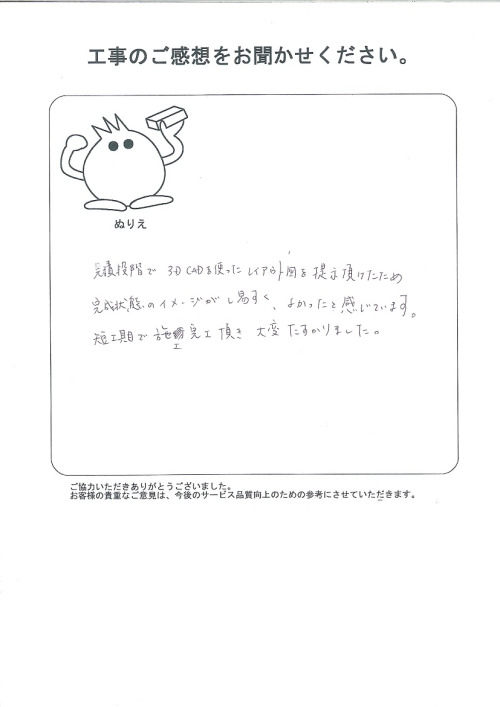 工事のご感想をお聞かせください。
ぬりえ
見積段階で 3D CADを使ったレイアウト図を提示頂けたため
完成状態のイメージがし易すく、よかったと感じています。
短工期で施工完工頂き 大変たすかりました。
ご協力いただきありがとうございました。
お客様の貴重なご意見は、今後のサービス品質向上のための参考にさせていただきます。